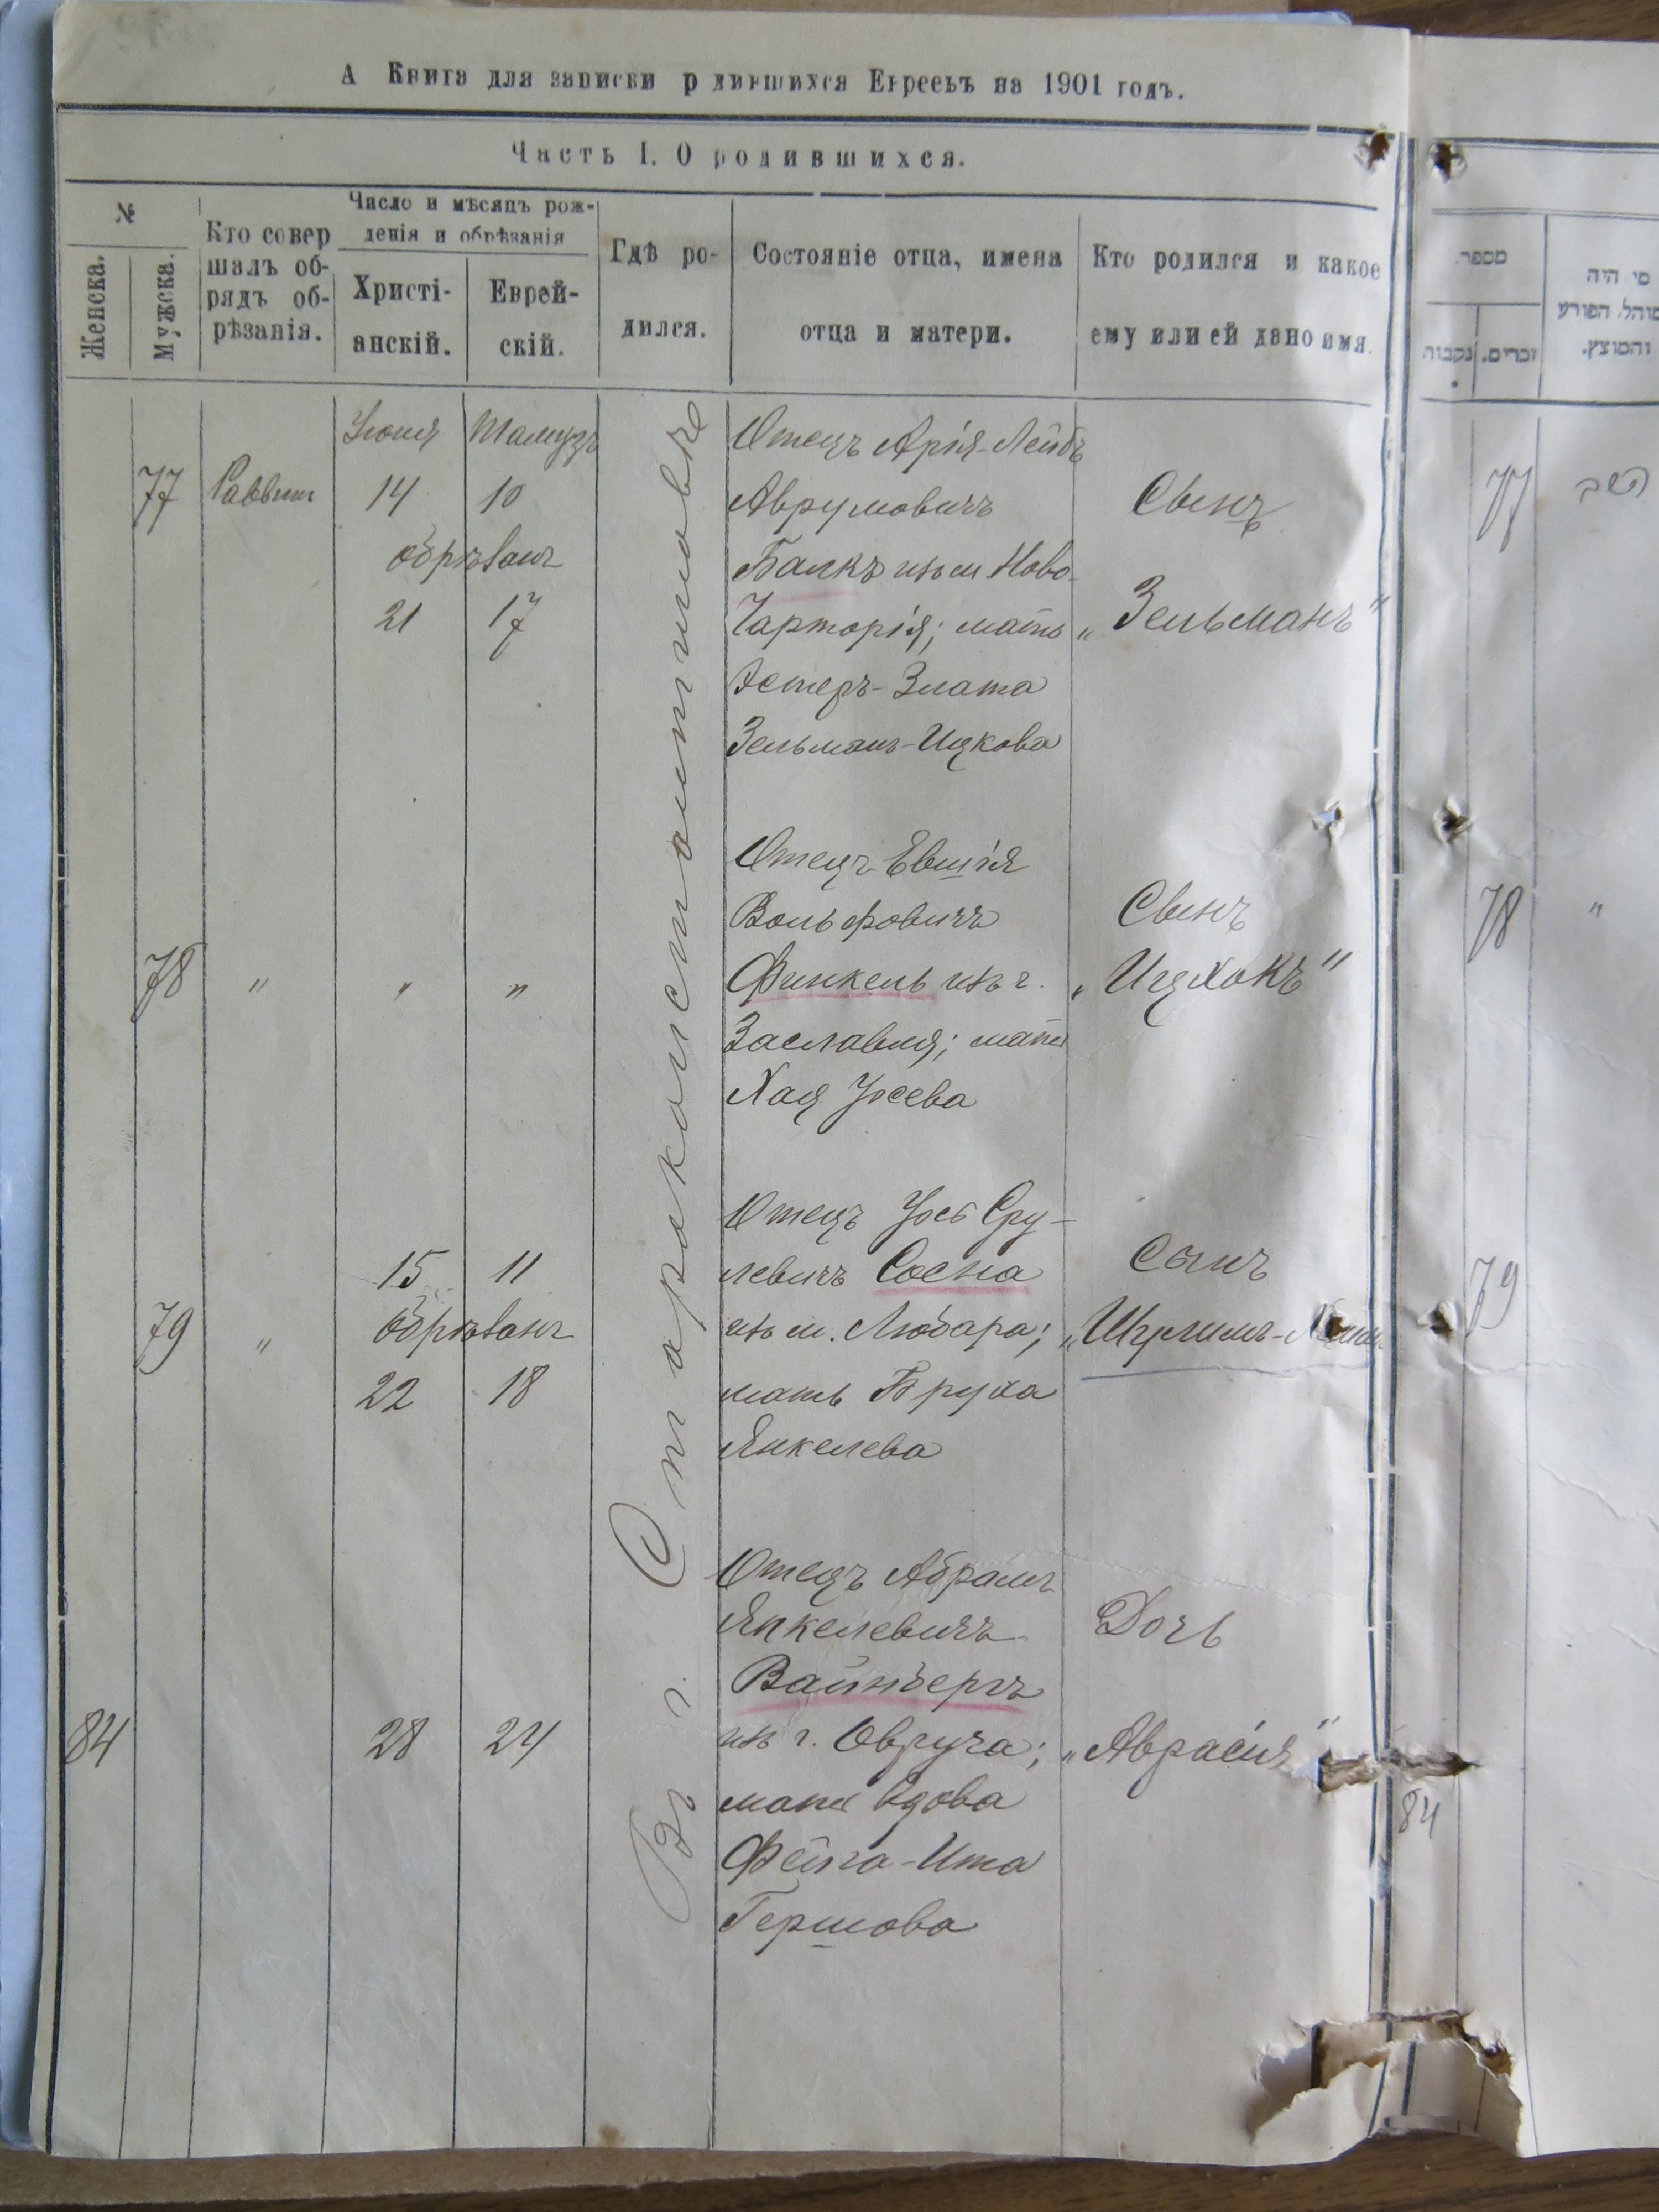 А Книга для записки р дившихся Евреевъ на 1901 годъ.
Часть I. О родившихся.
№
Женска.
Мужска.
Кто совер
шалъ об-
рядъ об-
рѣзанія.
Число и мѣсяцъ рож-
денія и обрѣзанія
Христі-
анскій.
Еврей-
скій.
Гдѣ ро-
дился.
Состояніе отца, имена
отца и матери.
Кто родился и какое
ему или ей дано имя.
מספר.
נקבות
זכרים.
מי היה
מוהל, הפורע
והמוצץ.
Въ г. Староконстантиновѣ
Іюня Тамузъ
77 Раввинъ 14 10
обрѣзанъ
21 17
Отецъ Арія-Лейбъ
Аврумовичъ
Балкъ изъ м Ново-
Чарторія; мать
Эстеръ-Злата
Зельманъ-Ицкова
Сынъ
„Зельманъ"
77
78 " " "
Отецъ Евшія
Вольфовичъ
Финкель изъ г.
Заславля; мать
Хая Іосева
Сынъ
„Ицхокъ"
78 "
15 11
79 " обрѣзанъ
22 18
Отецъ Іось Сру-
левичъ Сосна
изъ м. Любара;
мать Бруха
Янкелева
Сынъ
79
84 28 24
Отецъ Абрамъ
Янкелевичъ
Вайнбергъ
изъ г. Овруча;
мать вдова
Фейга-Ита
Гершова
Дочь
„Аврасія"
84